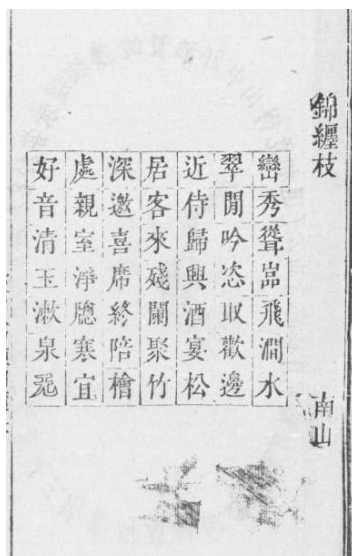 錦纏枝
南山
巒秀聳嵓飛澗水
翠閒吟恣取歡邊
近侍歸興酒宴松
居客來殘闌聚竹
深邀喜席終陪檜
處親室淨牕寒宜
好音清玉漱泉